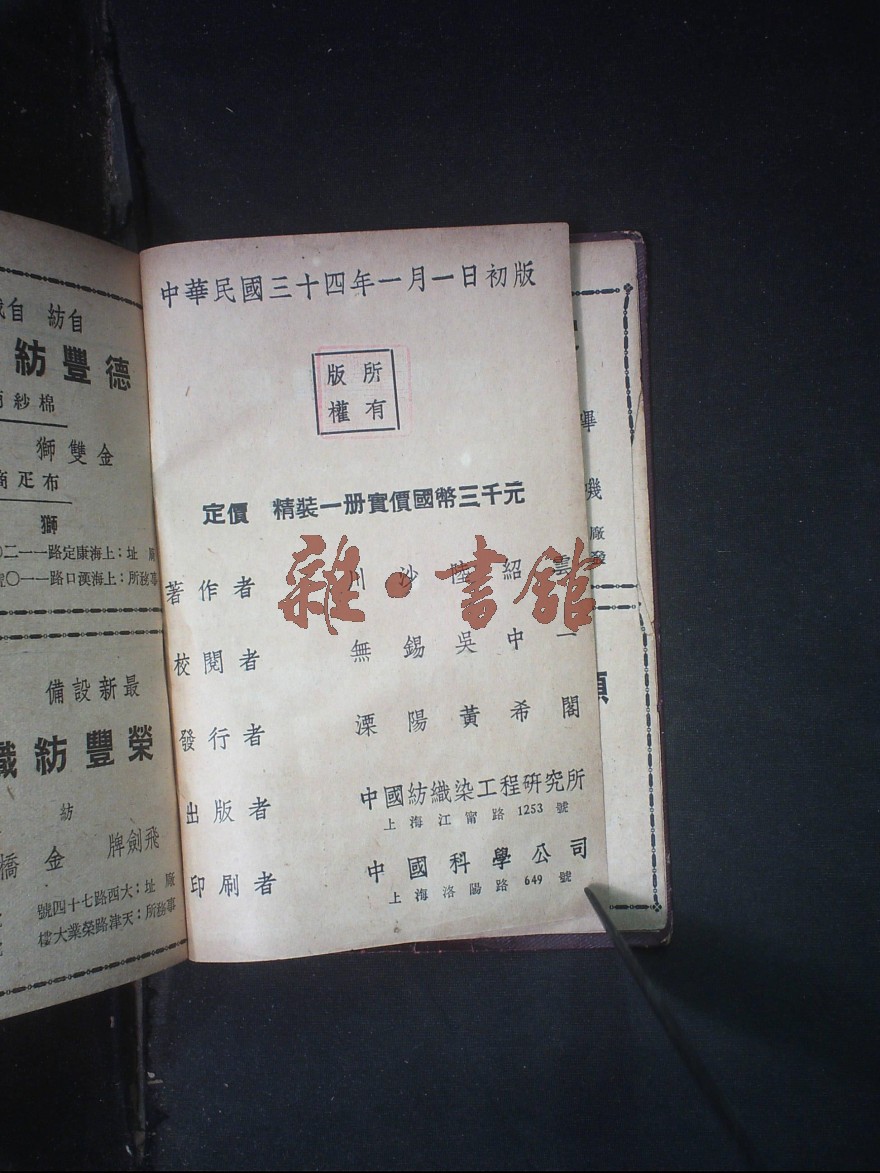 中華民國三十四年一月一日初版
版權所有
定價 精裝一册實價國幣三千元
著作者 川沙陸紹雲
校閱者 無錫吳中一
發行者 溧陽黃希閣
出版者 中國紡織染工程研究所
上海江甯路1253號
印刷者 中國科學公司
上海洛陽路649號
雜·書館
自紡自
德豐紡
棉紗
金雙獅
布疋
獅
址:上海康定路一一二〇
事務所:上海漢口路一一〇號
最新設備
榮豐紡織
紡
飛劍牌 金橋
廠址:大西路七十四號
事務所:天津路榮業大樓
廠